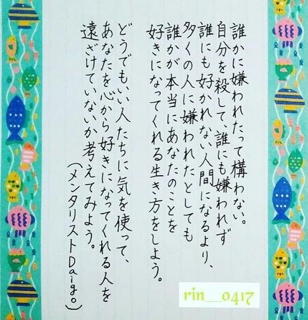 誰かに嫌われたって構わない。
自分を殺して、誰にも嫌われず
誰にも好かれない人間になるより、
多くの人に嫌われたとしても
誰かが本当にあなたのことを
好きになってくれる生き方をしよう。
どうでもいい人たちに気を使って、
あなたを心から好きになってくれる人を
遠ざけていないか考えてみよう。
(メンタリストDaiGo)
rin__0417